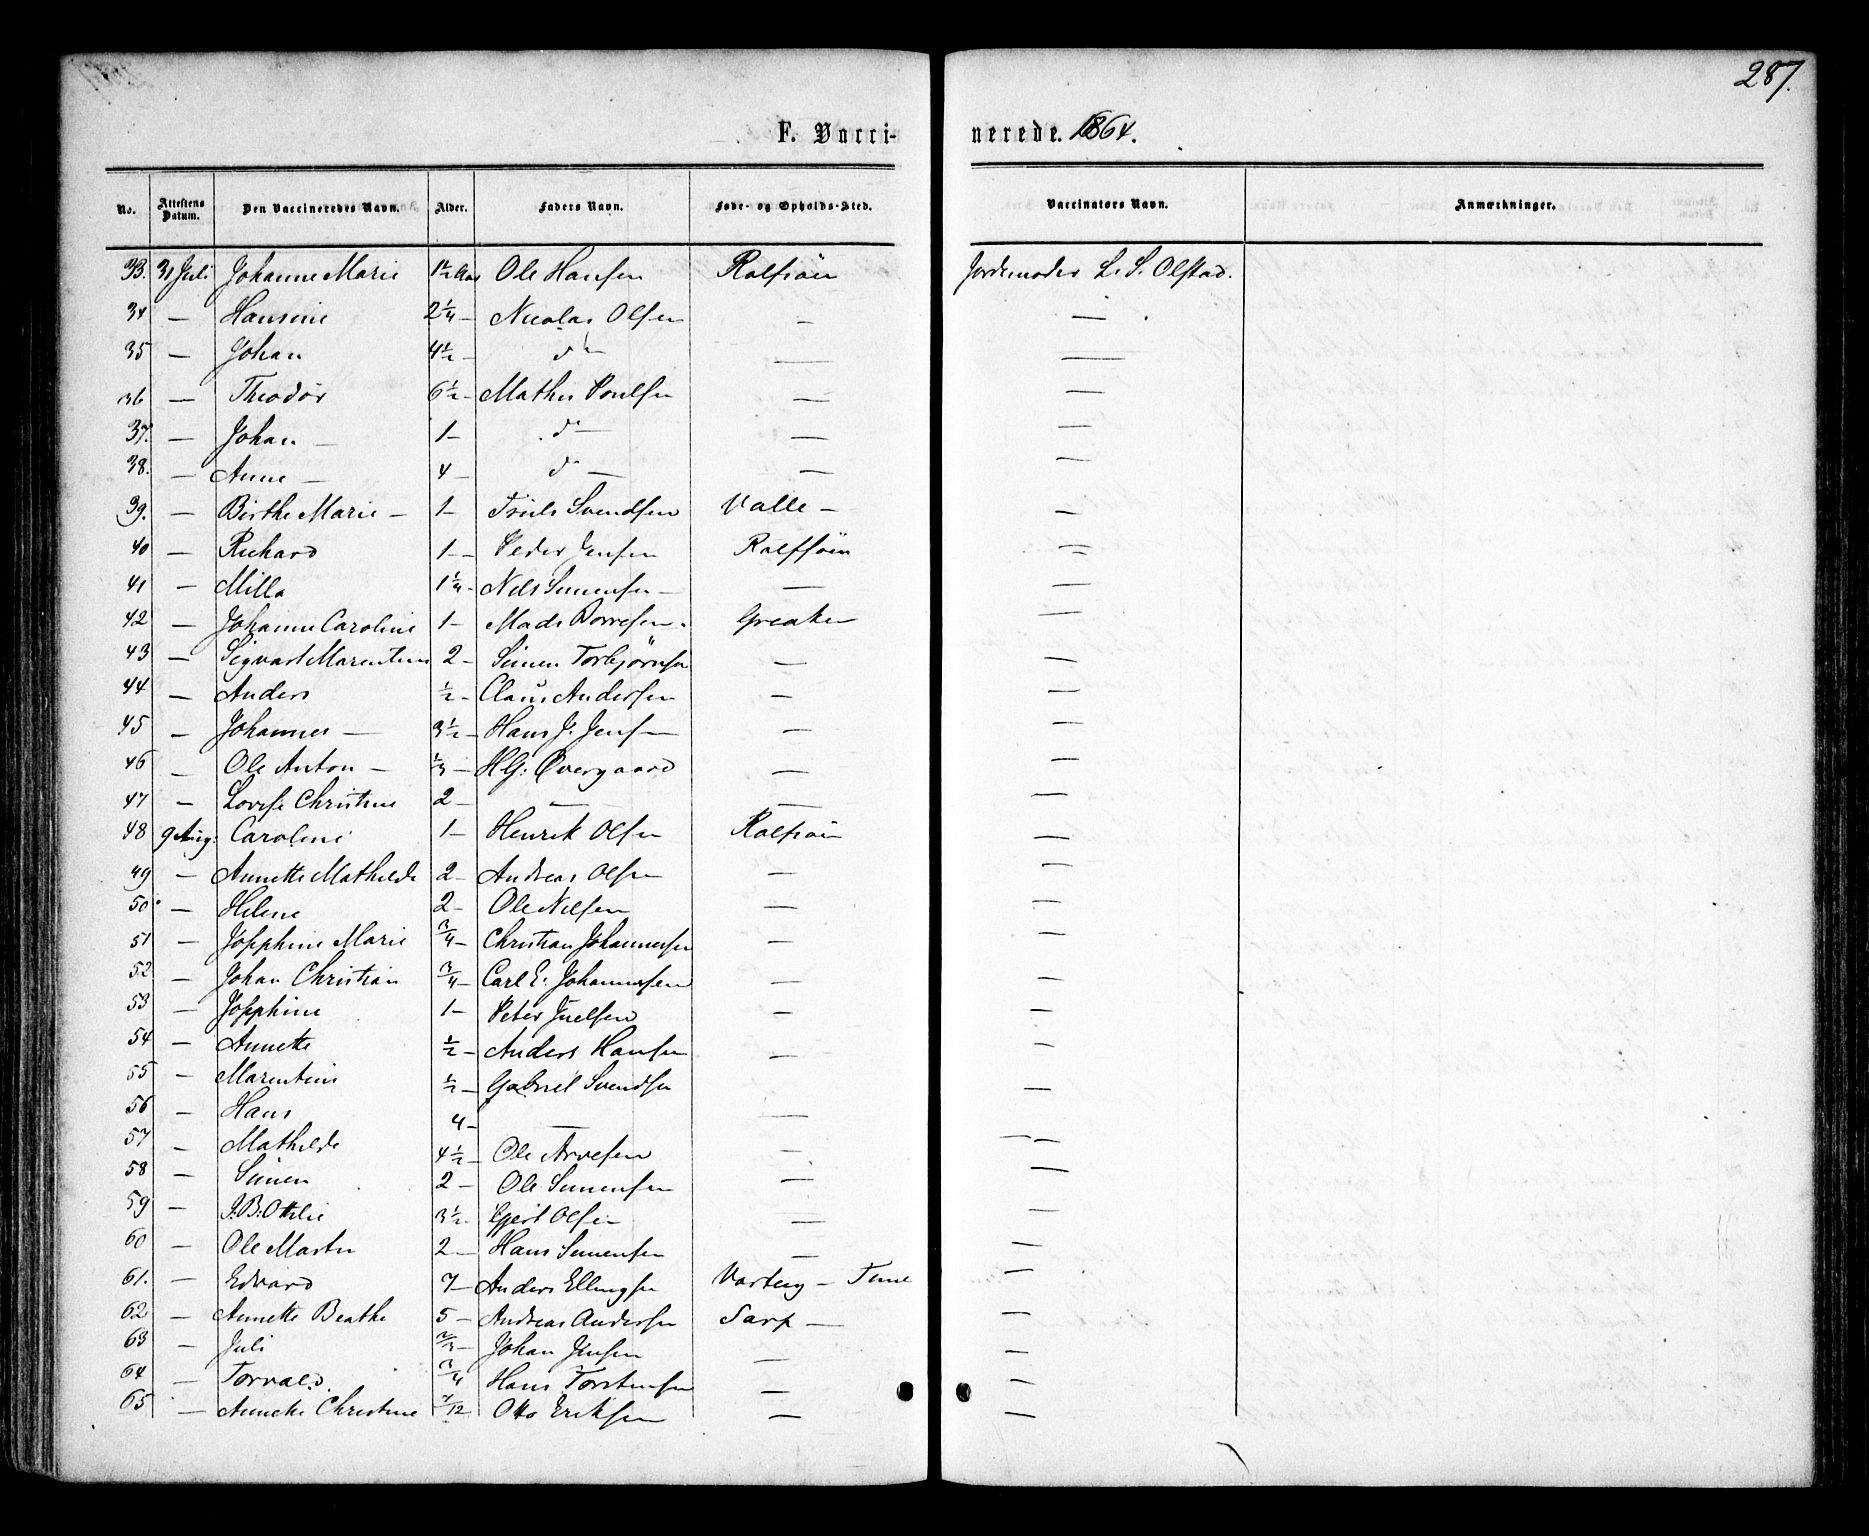 287.
F. Vacci-nerede. 1864.
No. Attestens Datum. Den Vaccineredes Navn. Alder. Faders Navn. Føde- og Opholds-Sted. Vaccinatørs Navn. Anmærkninger.
33. 31 Juli Johanne Marie 1½ Aar Ole Hansen Rolfsöen Jordemoder L. S. Olstad.
34 — Hansine 2¼ — Nicolai Olsen — —
35 — Johan 4½ — do — —
36 — Theodor 6½ — Mathis Poulsen — —
37. — Johan — 1 — do — — —
38. — Anne — 4 — do — — —
39. — Birthe Marie — 1 — Troels Svendsen Valle — —
40 — Richard 1 — Peder Jensen Rolfsöen —
41 — Milla 1¼ — Nils Simensen — — —
42 — Johanne Caroline 1 — Mads Borresen. Greaker —
43 — Sigvart Marentius 2 — Simen Torbjörnsen — —
44 — Anders ½ — Claus Andersen — —
45 — Johannes — 3½ — Hans J. Jensen — —
46 — Ole Anton — ⅓ — H. G. Overgaard — —
47 — Lovise Christine 2 — — — —
48 9 Aug: Caroline 1 — Henrik Olsen Rolfsöen —
49 — Annette Mathilde 2 — Andreas Olsen — —
50 — Helene 2 — Ole Nilsen — —
51 — Josephine Marie ¾ — Christian Johannesen — —
52 — Johan Christian ¾ — Carl E. Johannesen — —
53 — Josephine 1 — Peter Juelsen — —
54 — Annette ½ — Anders Hansen — —
55 — Marentius ½ — Gabriel Svendsen —
56 — Hans 4 — — —
57 — Mathilde 4½ — Ole Arvesen — —
58 — Simen 2 — Ole Simensen — —
59 — J. B. Ottilie 3½ — Gjert Olsen — —
60 — Ole Martin 2 — Hans Simensen — —
61. — Edvard 7 — Anders Ellingsen Varteig — Tune —
62 — Annette Beathe 5 — Andreas Andersen Sarp — —
63 — Juli ⅔ — Johan Jensen — —
64 — Torvald ¾ Hans Torstensen — —
65 — Anneke Christine 7/12 Otto Eriksen — —